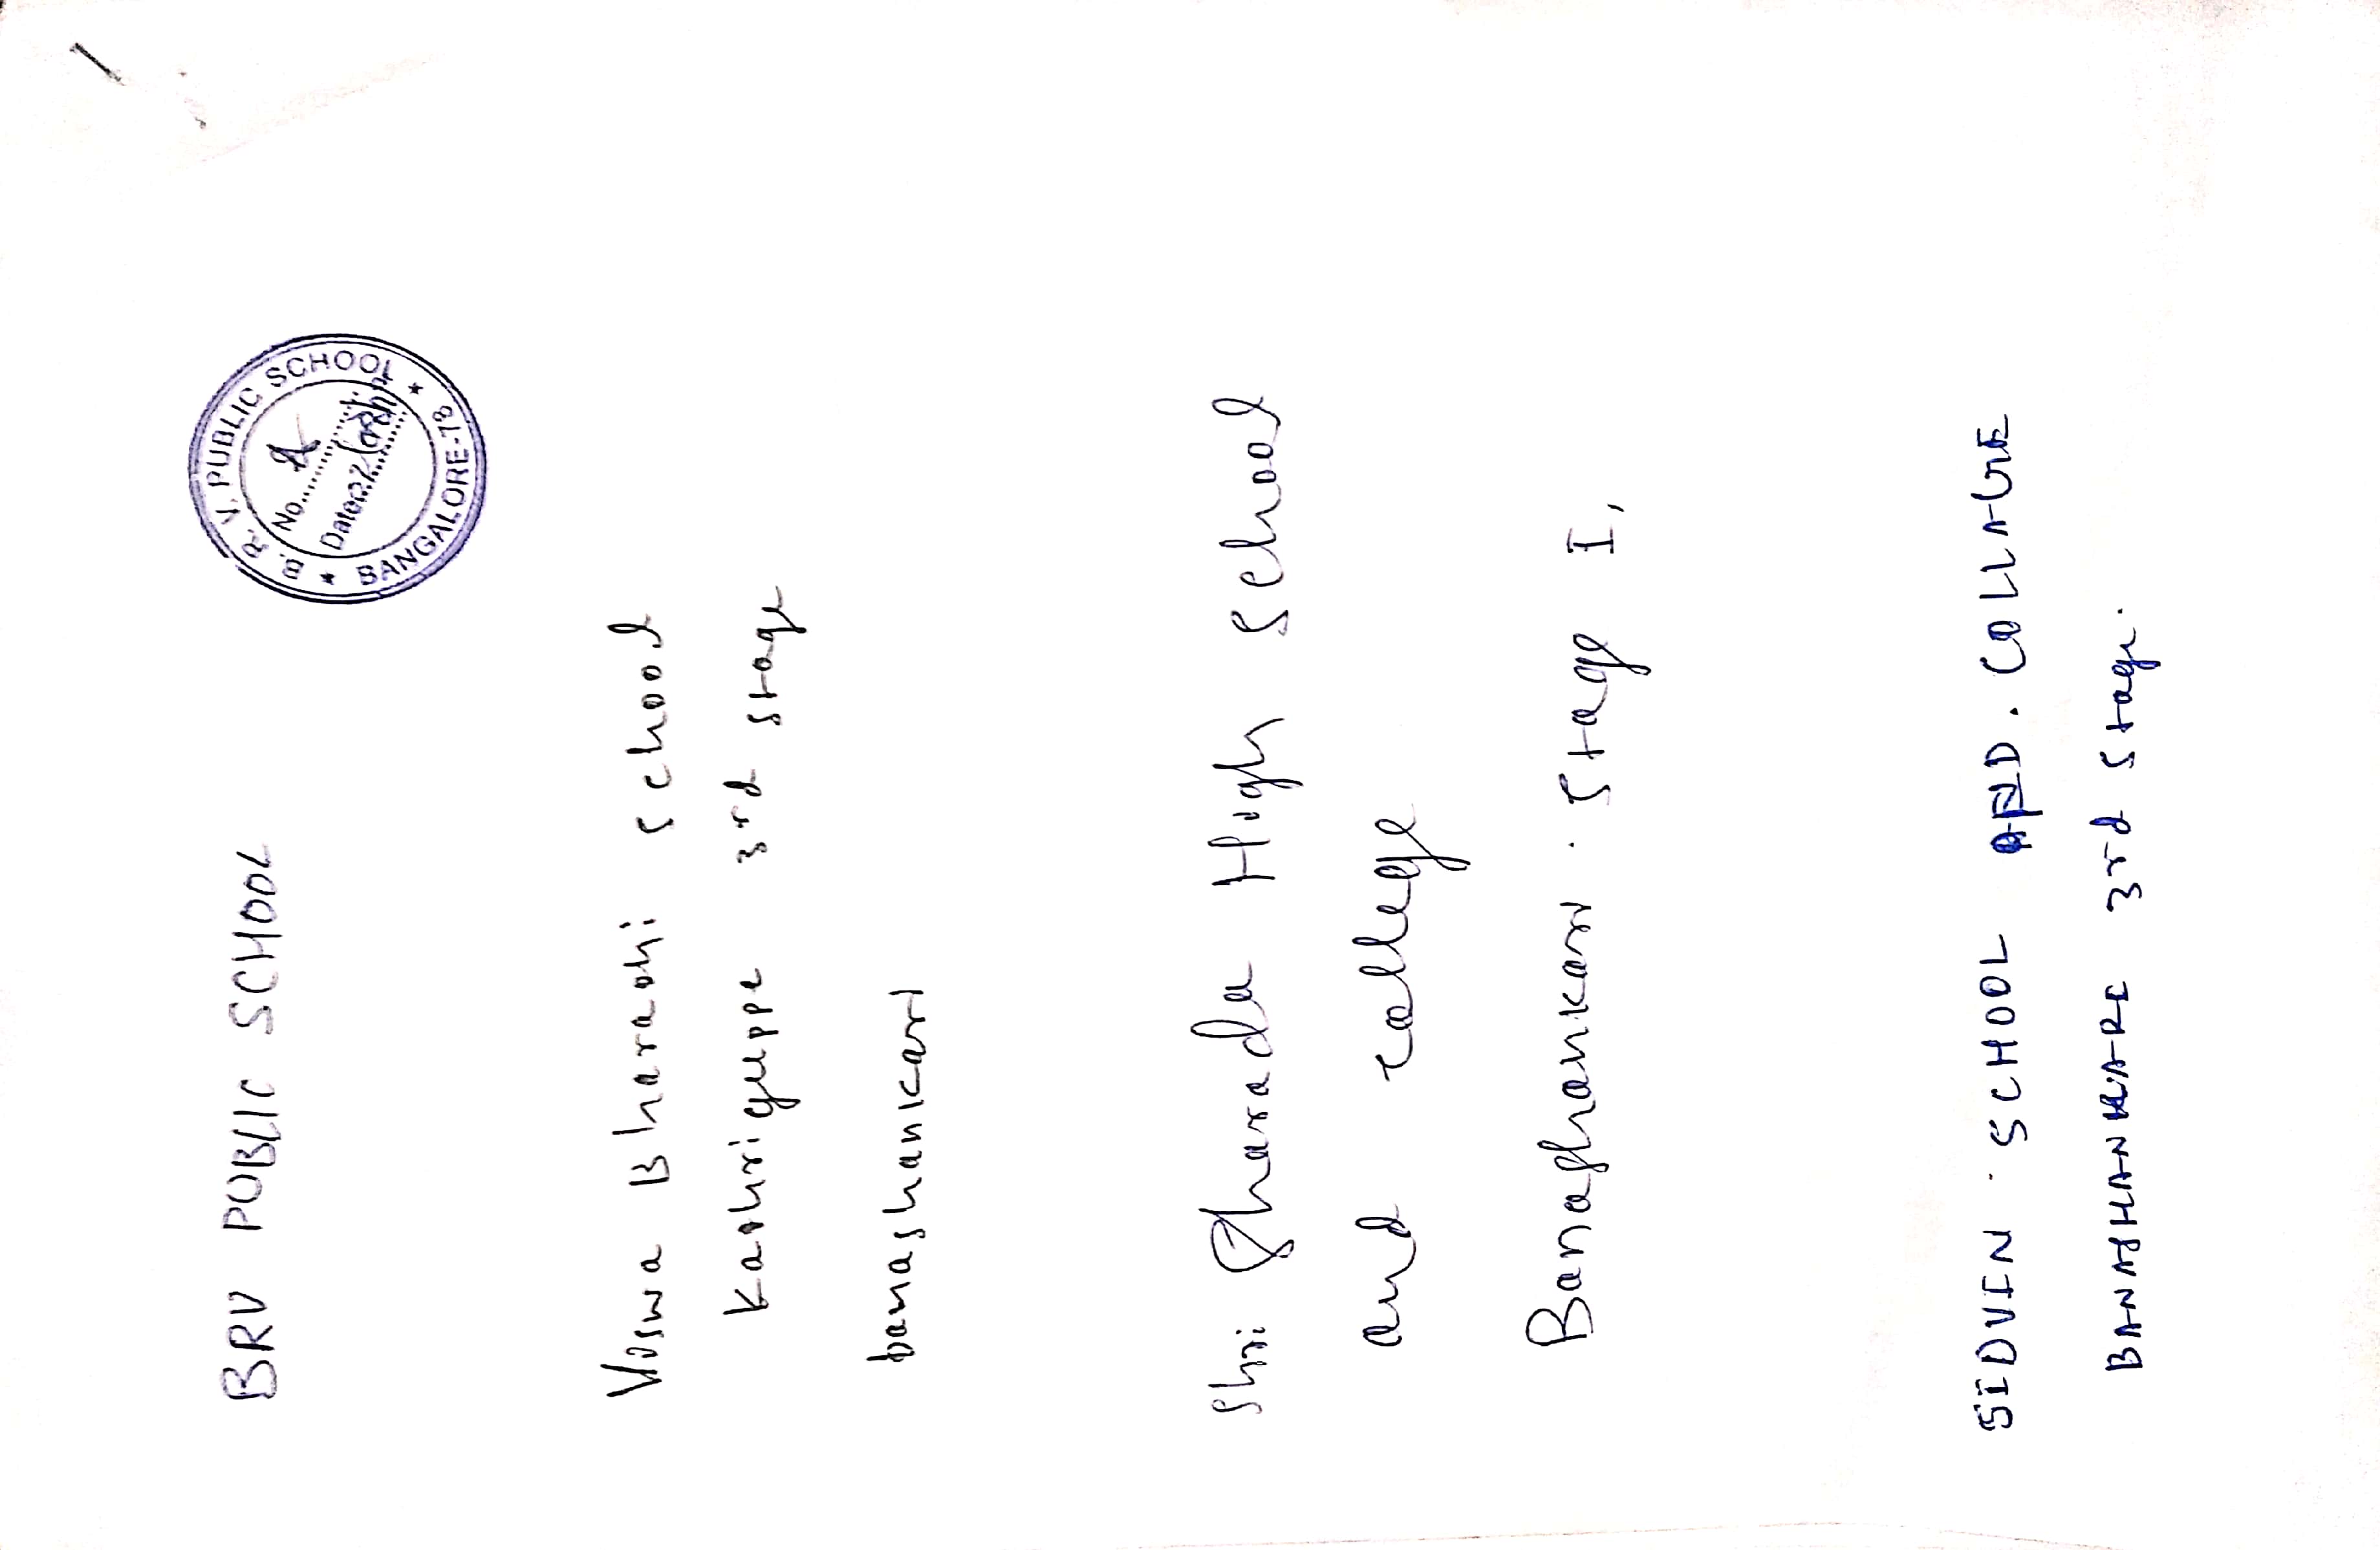 BRV PUBLIC SCHOOL
B. R. V. PUBLIC SCHOOL
No.
Date
BANGALORE-78
Viswa Bharathi School
Kathriguppe 3rd Stage
banashankari
Shri Sharada High School
and college
Banashankari . Stage I,
SIDVIN . SCHOOL AND . COLLAGE
BANASHANKARE 3rd Stage.